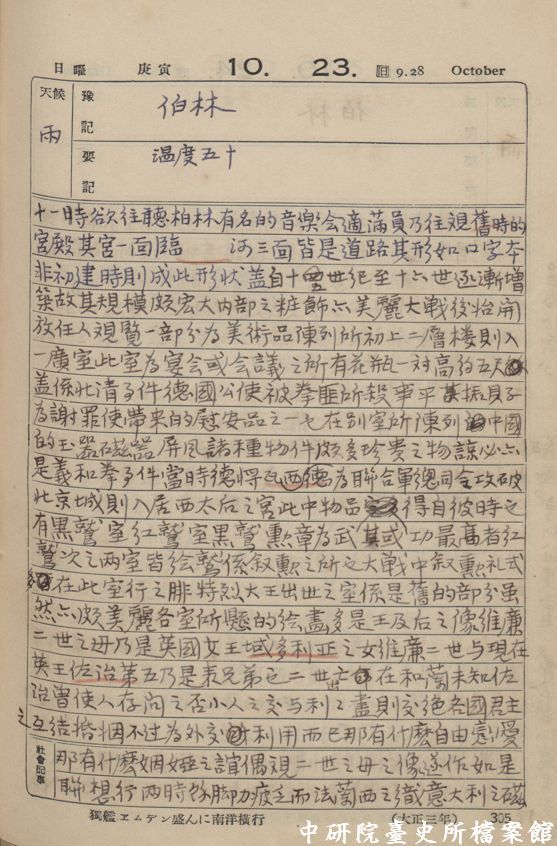 日曜 庚寅 10. 23. 旧 9.28 October
天候 豫記 伯林
雨 要記 温度五十
十一時欲往聽柏林有名的音樂会適滿員乃往視舊時的
宮殿其宮一面臨 河三面皆是道路其形如口字本
非初建時則成此形状盖自十五世紀至十六世逐漸增
築故其規模頗宏大内部之粧飾亦美麗大戰後始開
放任人視覽一部分為美術品陳列所初上二層楼則入
一廣室此室為宴会或会議之所有花瓶一对高約五尺
盖係北清事件德國公使被拳匪所殺事平 振貝子
為謝罪使帶来的慰安品之一也在别室所陳列 中國
的玉器磁器屏風諸種物件頗多珍貴之物諒必亦
是義和拳事件當時德将瓦西德為聯合軍總司令攻破
北京城則入居西太后之宮此中物品 得自彼時也
有黑鷲室红鷲室黑鷲勲章為武 或功最高者红
鷲次之两室皆绘鷲係叙勲之所也大戰中叙勲礼式
多在此室行之腓特烈大王出世之室係是舊的部分虽
然亦頗美麗各室所懸的绘畫多是王及后之像維廉
二世之母乃是英國女王域多利亚之女維廉二世与現在
英王佐治第五乃是表兄弟也二世亡 在和蘭未知佐
治曾使人存问之否小人之交与利 盡則交绝各國君主
之互结婚姻不过為外交 利用而已那有什麽自由恋愛
社會記事 那有什麽姻婭之誼偶視二世之母之像遂作如是
聯想行两時餘脚力疲乏而法蘭西之織意大利之磁
獨艦エムデン盛んに南洋横行 （大正三年） 305
中研院臺史所檔案館